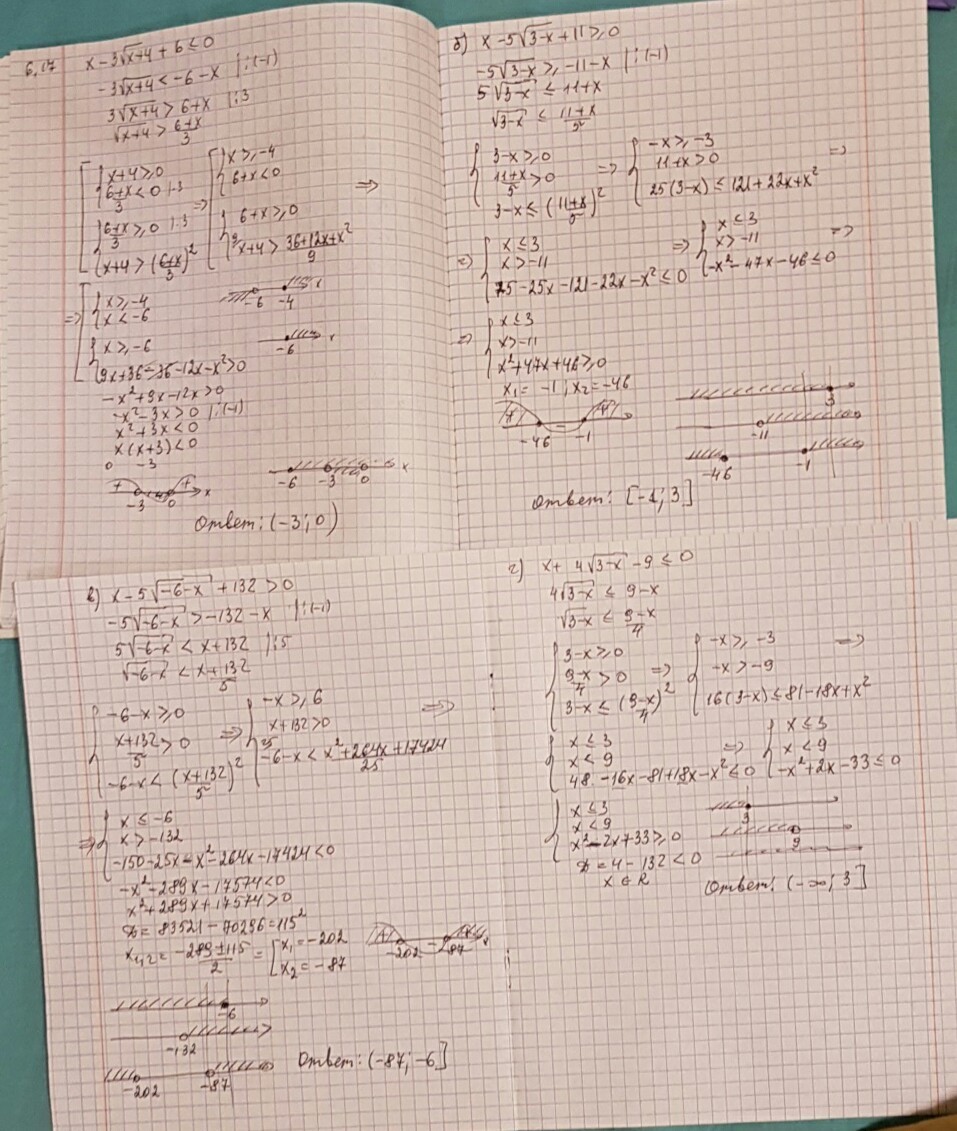 6.17 x-3√x+4 + 6 ≤ 0
-3√x+4 < -6-x |:(-1)
3√x+4 > 6+x |:3
√x+4 > 6+x/3
[ { x+4 ≥ 0 [ { x ≥ -4
6+x/3 < 0 |·3 ⇒ 6+x < 0 ⇒
{ 6+x/3 ≥ 0 |·3 { 6+x ≥ 0
x+4 > (6+x/3)² x+4 > 36+12x+x²/9
⇒ [ { x ≥ -4
x < -6
-6 -4 x
{ x ≥ -6
-6 x
9x+36-36-12x-x² > 0
-x²+9x-12x > 0
-x²-3x > 0 |:(-1)
x²+3x < 0
x(x+3) < 0
0 -3
+ - +
-3 0 x
-6 -3 0 x
Ответ: (-3; 0)
б) x-5√3-x + 11 ≥ 0
-5√3-x ≥ -11-x |:(-1)
5√3-x ≤ 11+x
√3-x ≤ 11+x/5
{ 3-x ≥ 0 ⇒ { -x ≥ -3 ⇒
11+x/5 > 0 11+x > 0
3-x ≤ (11+x/5)² 25(3-x) ≤ 121+22x+x²
⇒ { x ≤ 3 ⇒ { x ≤ 3 ⇒
x > -11 x > -11
75-25x-121-22x-x² ≤ 0 -x²-47x-46 ≤ 0
⇒ { x ≤ 3
x > -11
x²+47x+46 ≥ 0
x₁ = -1; x₂ = -46
+ - +
-46 -1
3
-11
-46 -1
Ответ: [-1; 3]
в) x-5√-6-x + 132 > 0
-5√-6-x > -132-x |:(-1)
5√-6-x < x+132 |:5
√-6-x < x+132/5
{ -6-x ≥ 0 ⇒ { -x ≥ 6 ⇒
x+132/5 > 0 x+132 > 0
-6-x < (x+132/5)² -6-x < x²+264x+17424/25
⇒ { x ≤ -6
x > -132
-150-25x-x²-264x-17424 < 0
-x²-289x-17574 < 0
x²+289x+17574 > 0
D = 83521-70296 = 115²
x₁,₂ = -289±115/2 = [ x₁ = -202
x₂ = -87
+ - +
-202 -87 x
-6
-132
-202 -87
Ответ: (-87; -6]
г) x + 4√3-x - 9 ≤ 0
4√3-x ≤ 9-x
√3-x ≤ 9-x/4
{ 3-x ≥ 0 ⇒ { -x ≥ -3 ⇒
9-x/4 > 0 -x > -9
3-x ≤ (9-x/4)² 16(3-x) ≤ 81-18x+x²
{ x ≤ 3 ⇒ { x ≤ 3
x < 9 x < 9
48-16x-81+18x-x² ≤ 0 -x²+2x-33 ≤ 0
{ x ≤ 3
x < 9
x²-2x+33 ≥ 0
D = 4-132 < 0
x ∈ R
3
9
Ответ: (-∞; 3]